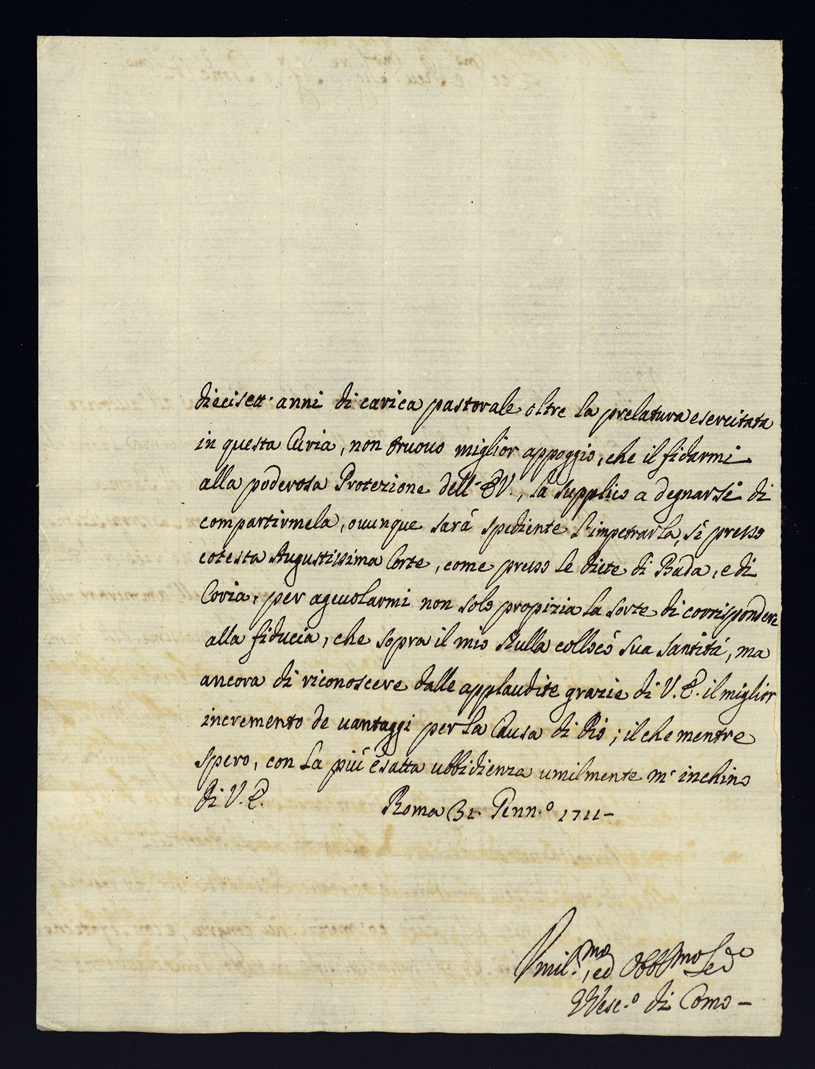 diecisett' anni di carica pastorale oltre la prelatura esercitata
in questa Curia, non truouo miglior appoggio, che il fidarmi
alla poderosa Protezione dell' E.V., la supplico a degnarsi di
compartirmela, ouunque sarà spediente l'impetrarla, sì presso
cotesta Augustissima Corte, come presso le diete di Bada, e di
Coria, per ageuolarmi non solo propizia la sorte di corrisponder
alla fiducia, che sopra il mio nulla collocò sua santità, ma
ancora di riconoscere dalle applaudite grazie di V.E. il miglior
incremento de vantaggi per la Causa di Dio; il che mentre
spero, con la più esatta ubbidienza umilmente m' inchino
di V.E. Roma 31. Genn.o 1711-
Vmil.mo, ed Obb.mo
Vesc.o di Como-